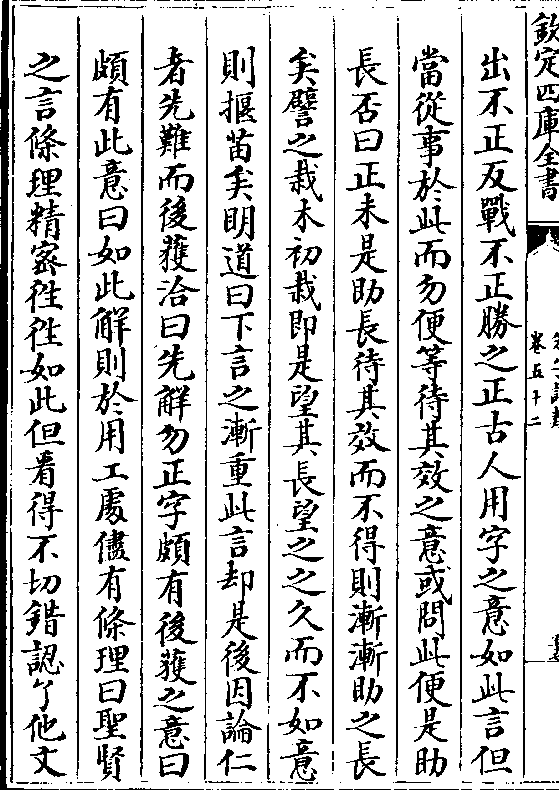 欽定四庫全書
卷五十二
出不正反戰不正勝之正古人用字之意如此言但
當從事於此而勿便等待其效之意或問此便是助
長否曰正未是助長待其效而不得則漸漸助之長
矣譬之栽木初栽即是望其長望之之久而不如意
則揠苗矣明道曰下言之漸重此言却是後因論仁
者先難而後獲洽曰先解勿正字頗有後獲之意曰
頗有此意曰如此解則於用工處儘有條理曰聖賢
之言條理精密徃徃如此但看得不切錯認了他文